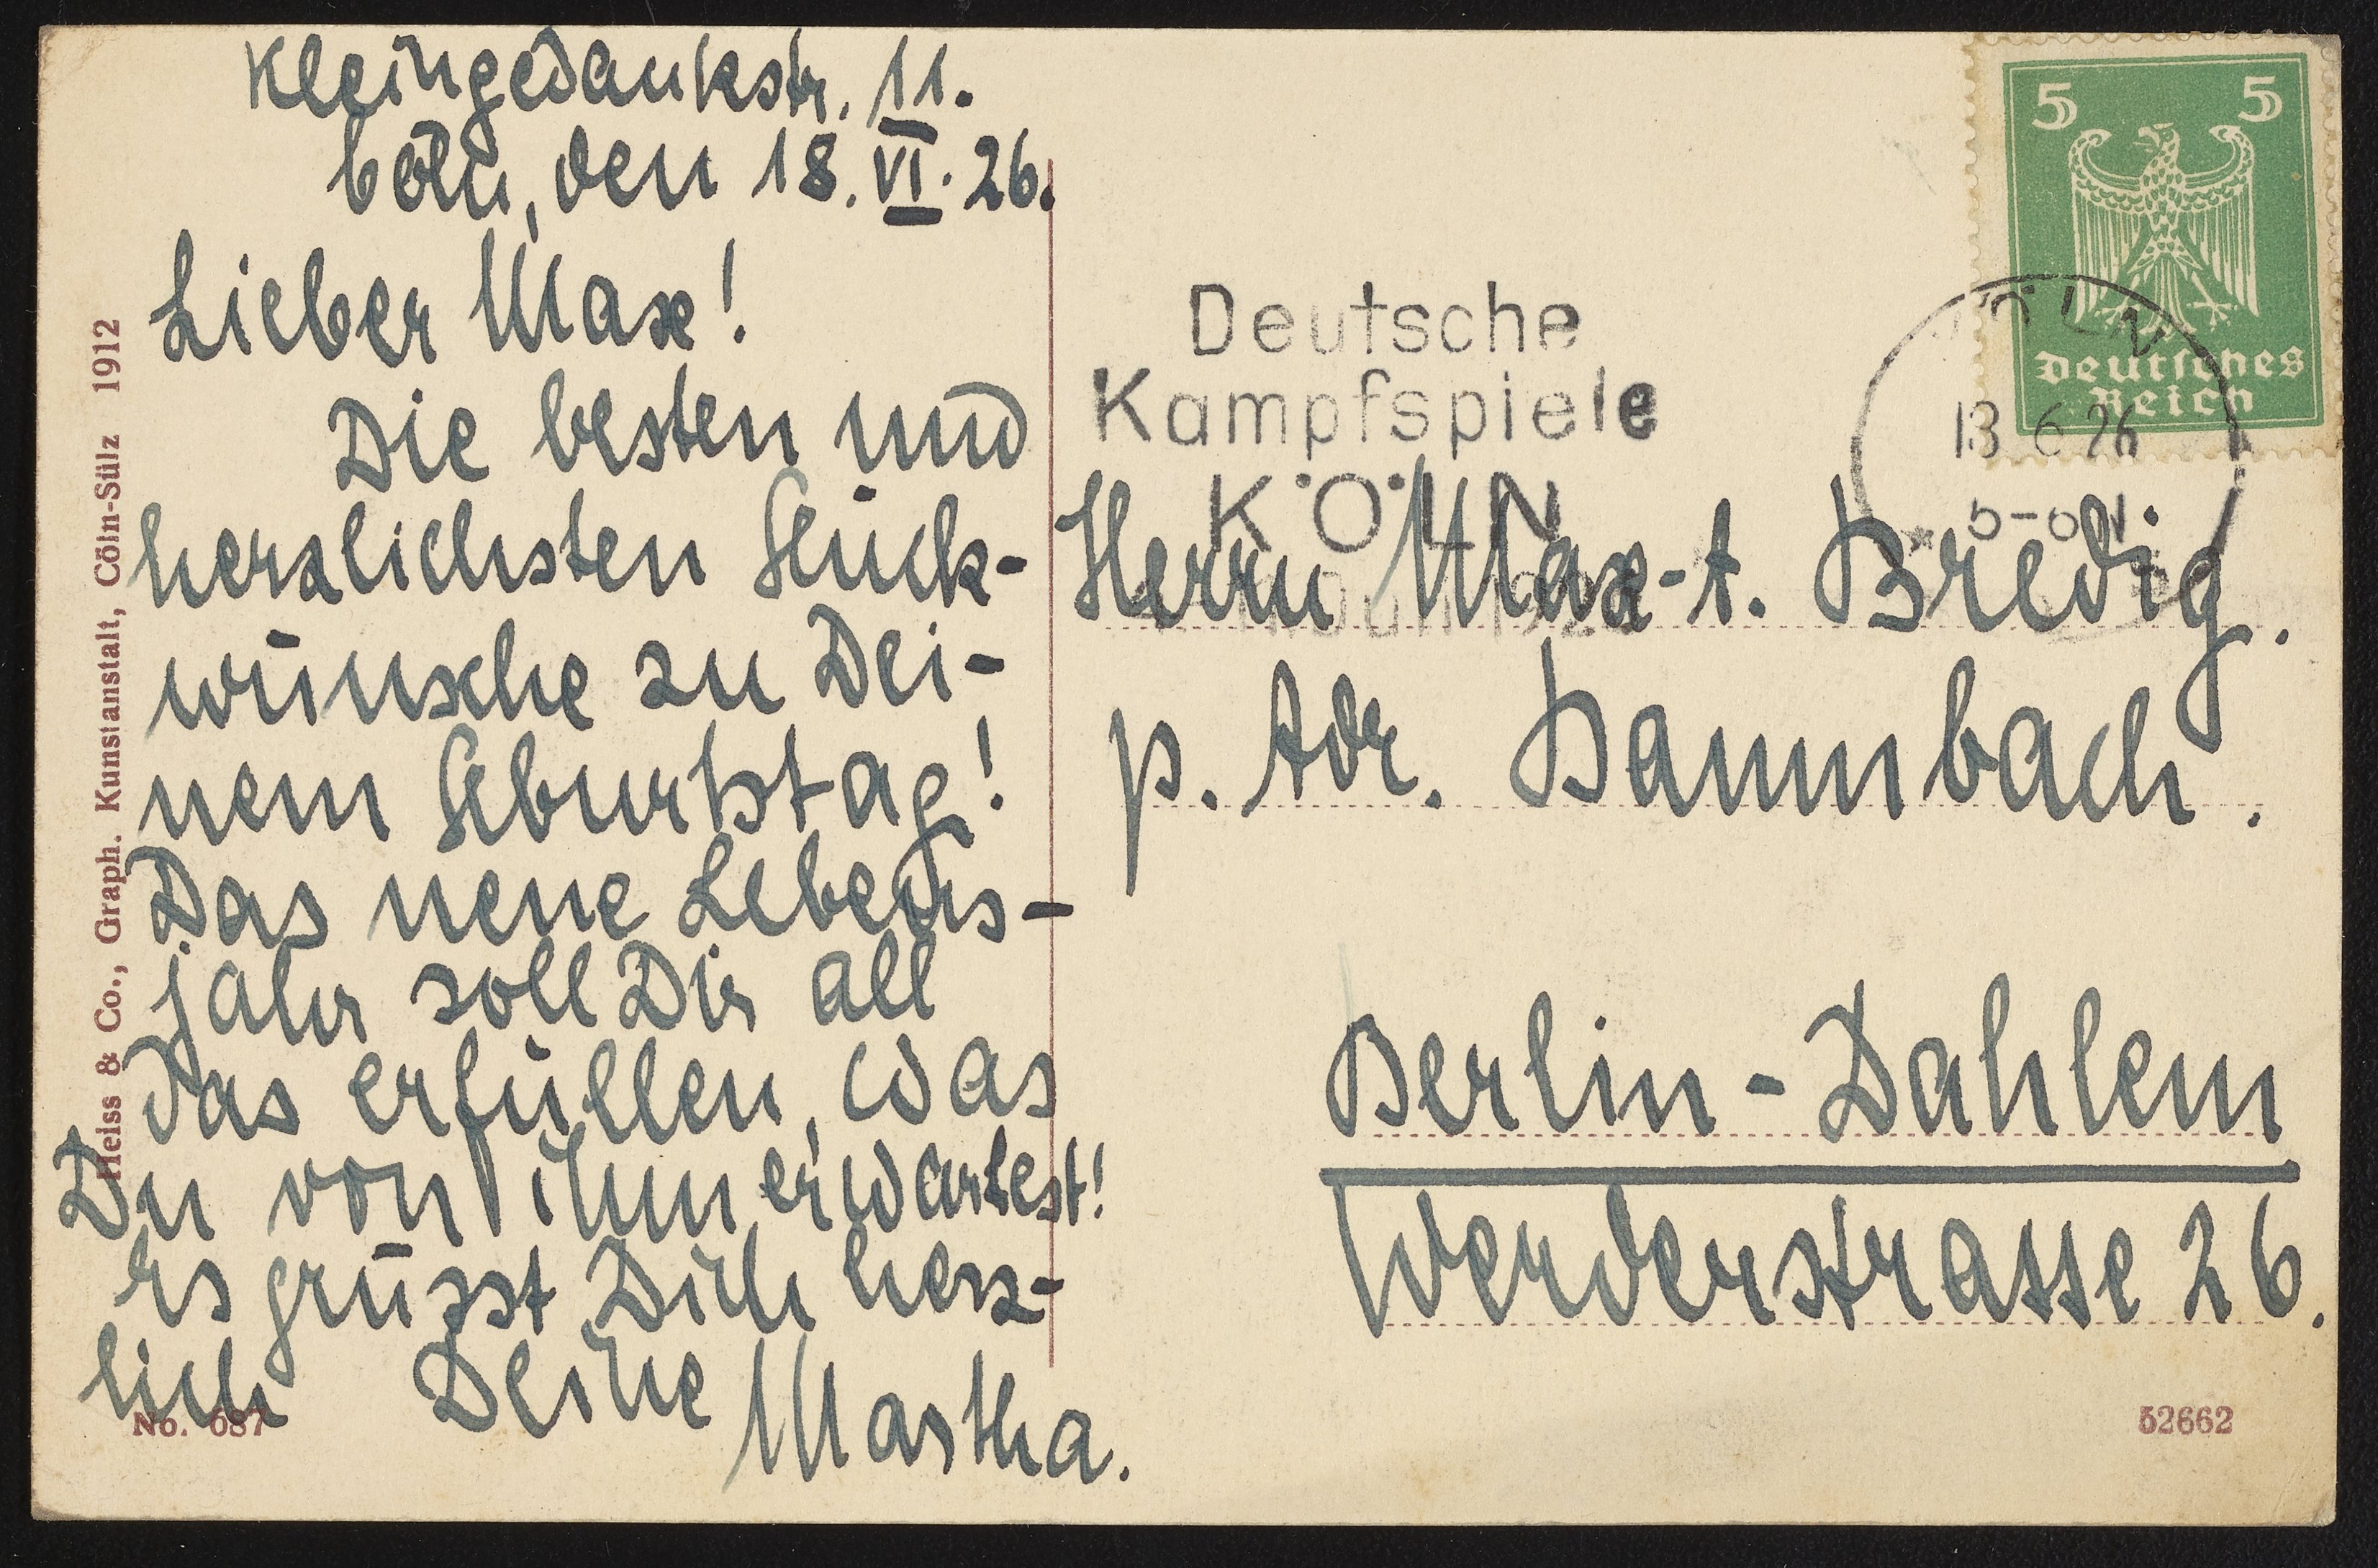 Kleingedankstr. 11.
Cöln, den 18. VI. 26.
Lieber Max!
Die besten und
herzlichsten Glück-
wünsche zu Dei-
nem Geburtstag!
Das neue Lebens-
jahr soll Dir all
das erfüllen, was
Du von ihm erwartest!
Es grüsst Dich herz-
lich Deine Martha.
Heiss & Co., Graph. Kunstanstalt, Cöln-Sülz 1912
No. 687
5 5
Deutsches
Reich
KÖLN
18 6 26
Deutsche
Kampfspiele
KÖLN
Juli 192
Herrn Max-A. Bredig.
p. Adr. Dannbach.
Berlin-Dahlem
Werderstrasse 26.
52662